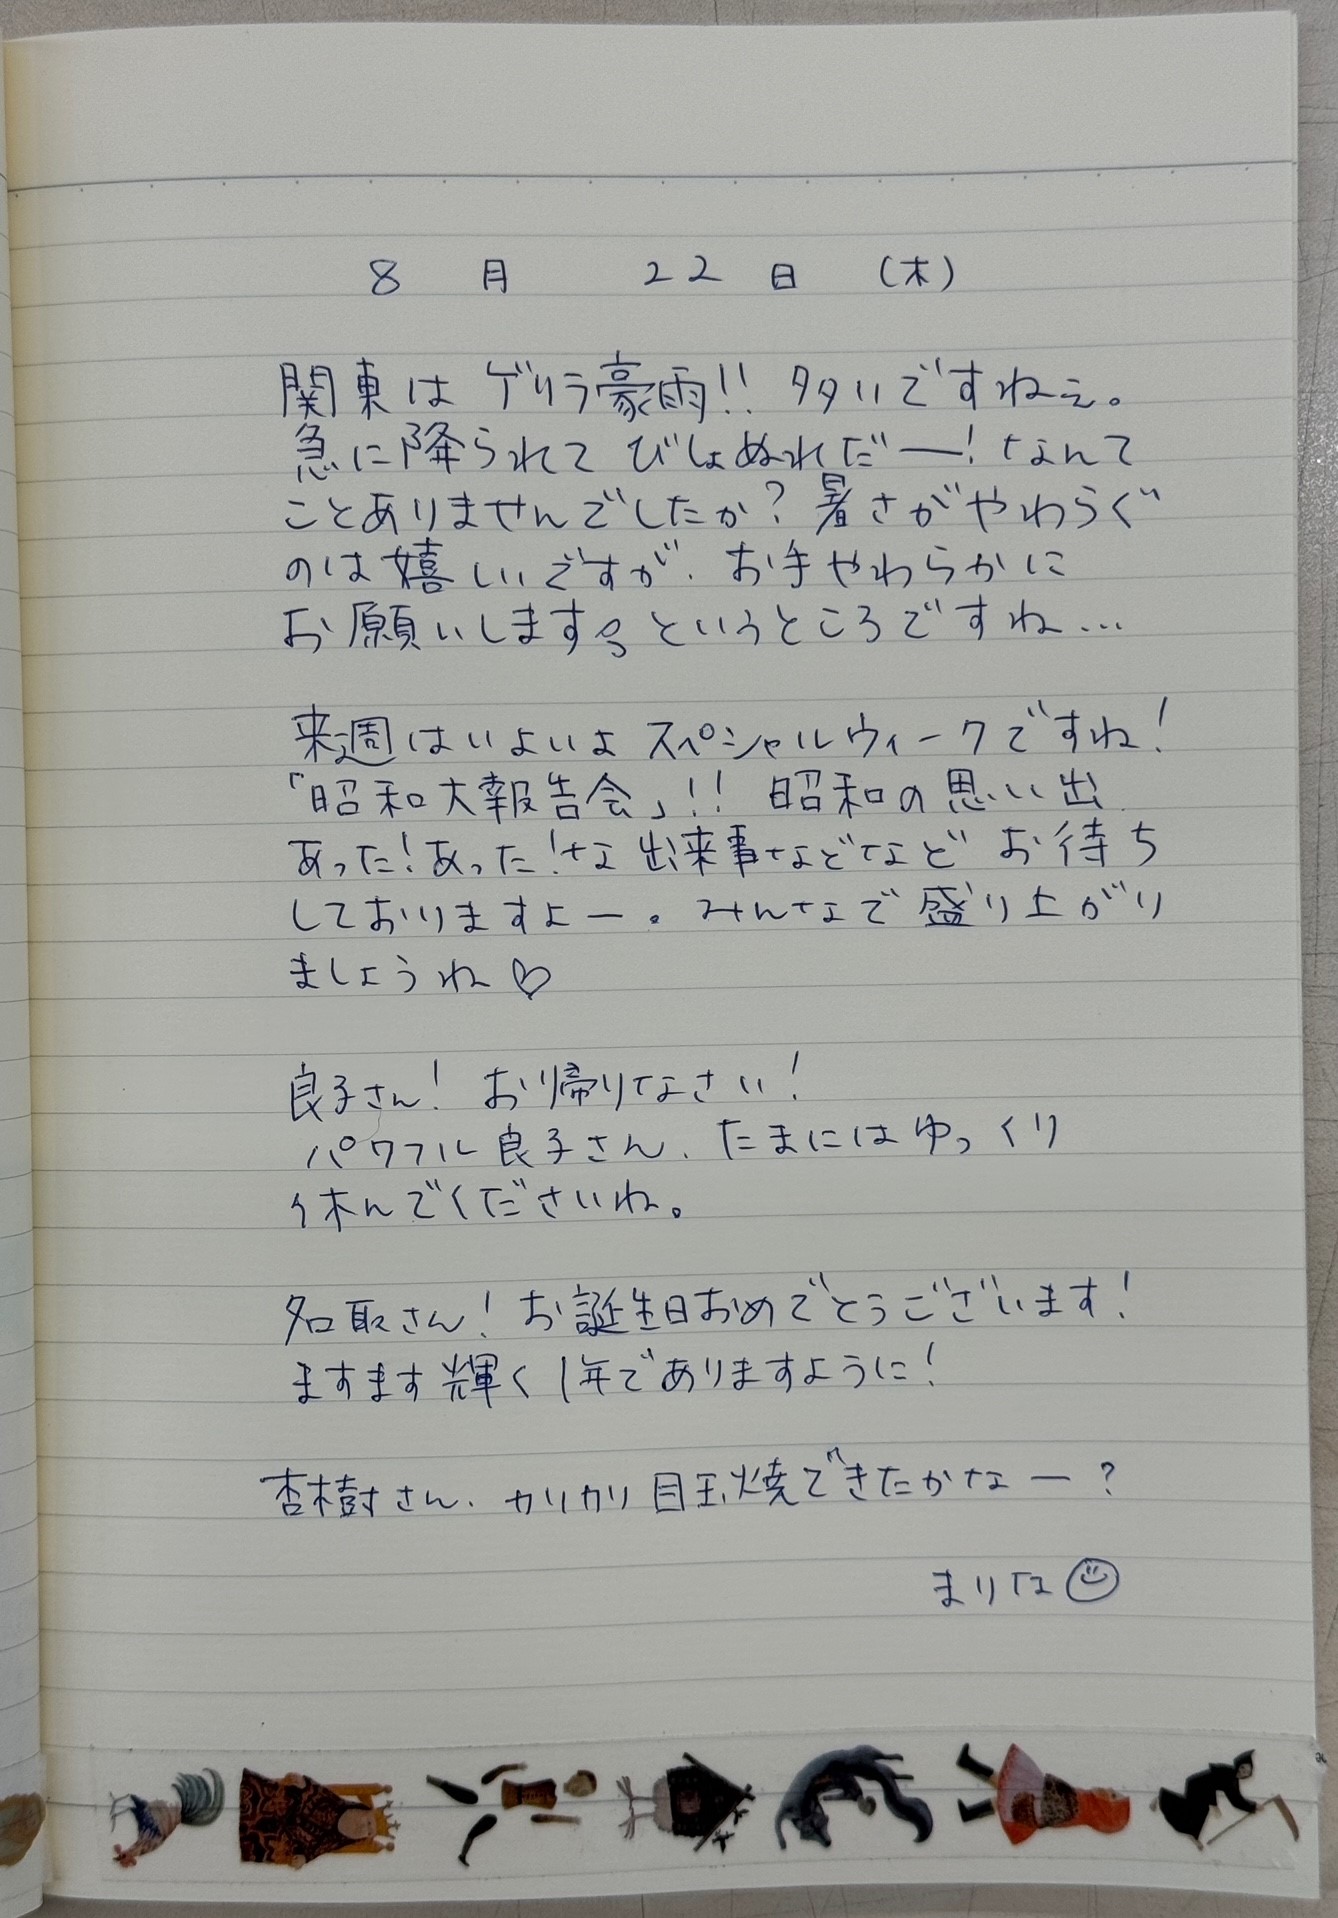 8月 22日 (木)
関東は ゲリラ豪雨!! 多いですねぇ。
急に降られて びしょぬれだー! なんて
ことありませんでしたか? 暑さがやわらぐ
のは嬉しいですが、お手やわらかに
お願いします。というところですね…
来週はいよいよ スペシャルウィークですね!
「昭和大報告会」!! 昭和の思い出
あった!あった!な 出来事などなど お待ち
しておりますよー。みんなで 盛り上がり
ましょうね♡
良子さん! お帰りなさい!
パワフル良子さん、たまにはゆっくり
休んでくださいね。
名取さん! お誕生日おめでとうございます!
ますます輝く1年でありますように!
杏樹さん、カリカリ目玉焼できたかなー?
まりな